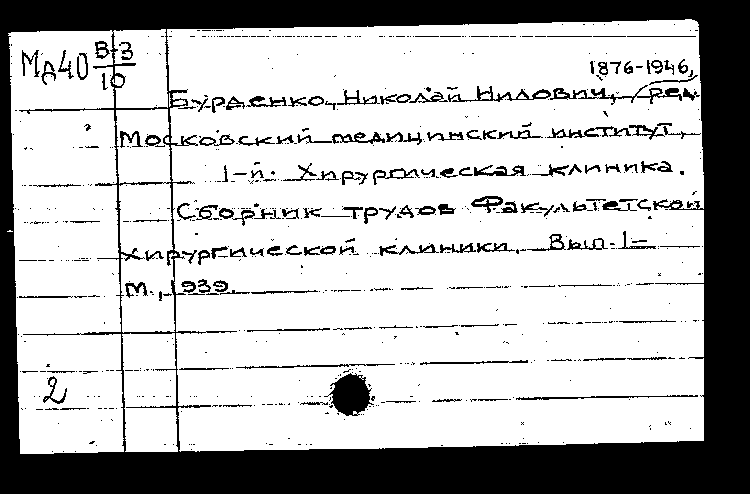 В-3
Мр40
10
1876-1946,
Бурденко, Николай Нилович, ред.
Московский медицинский институт,
1-й. Хирургическая клиника.
Сборник трудов Факультетской
хирургической клиники. Вып. 1-
М., 1939.
2